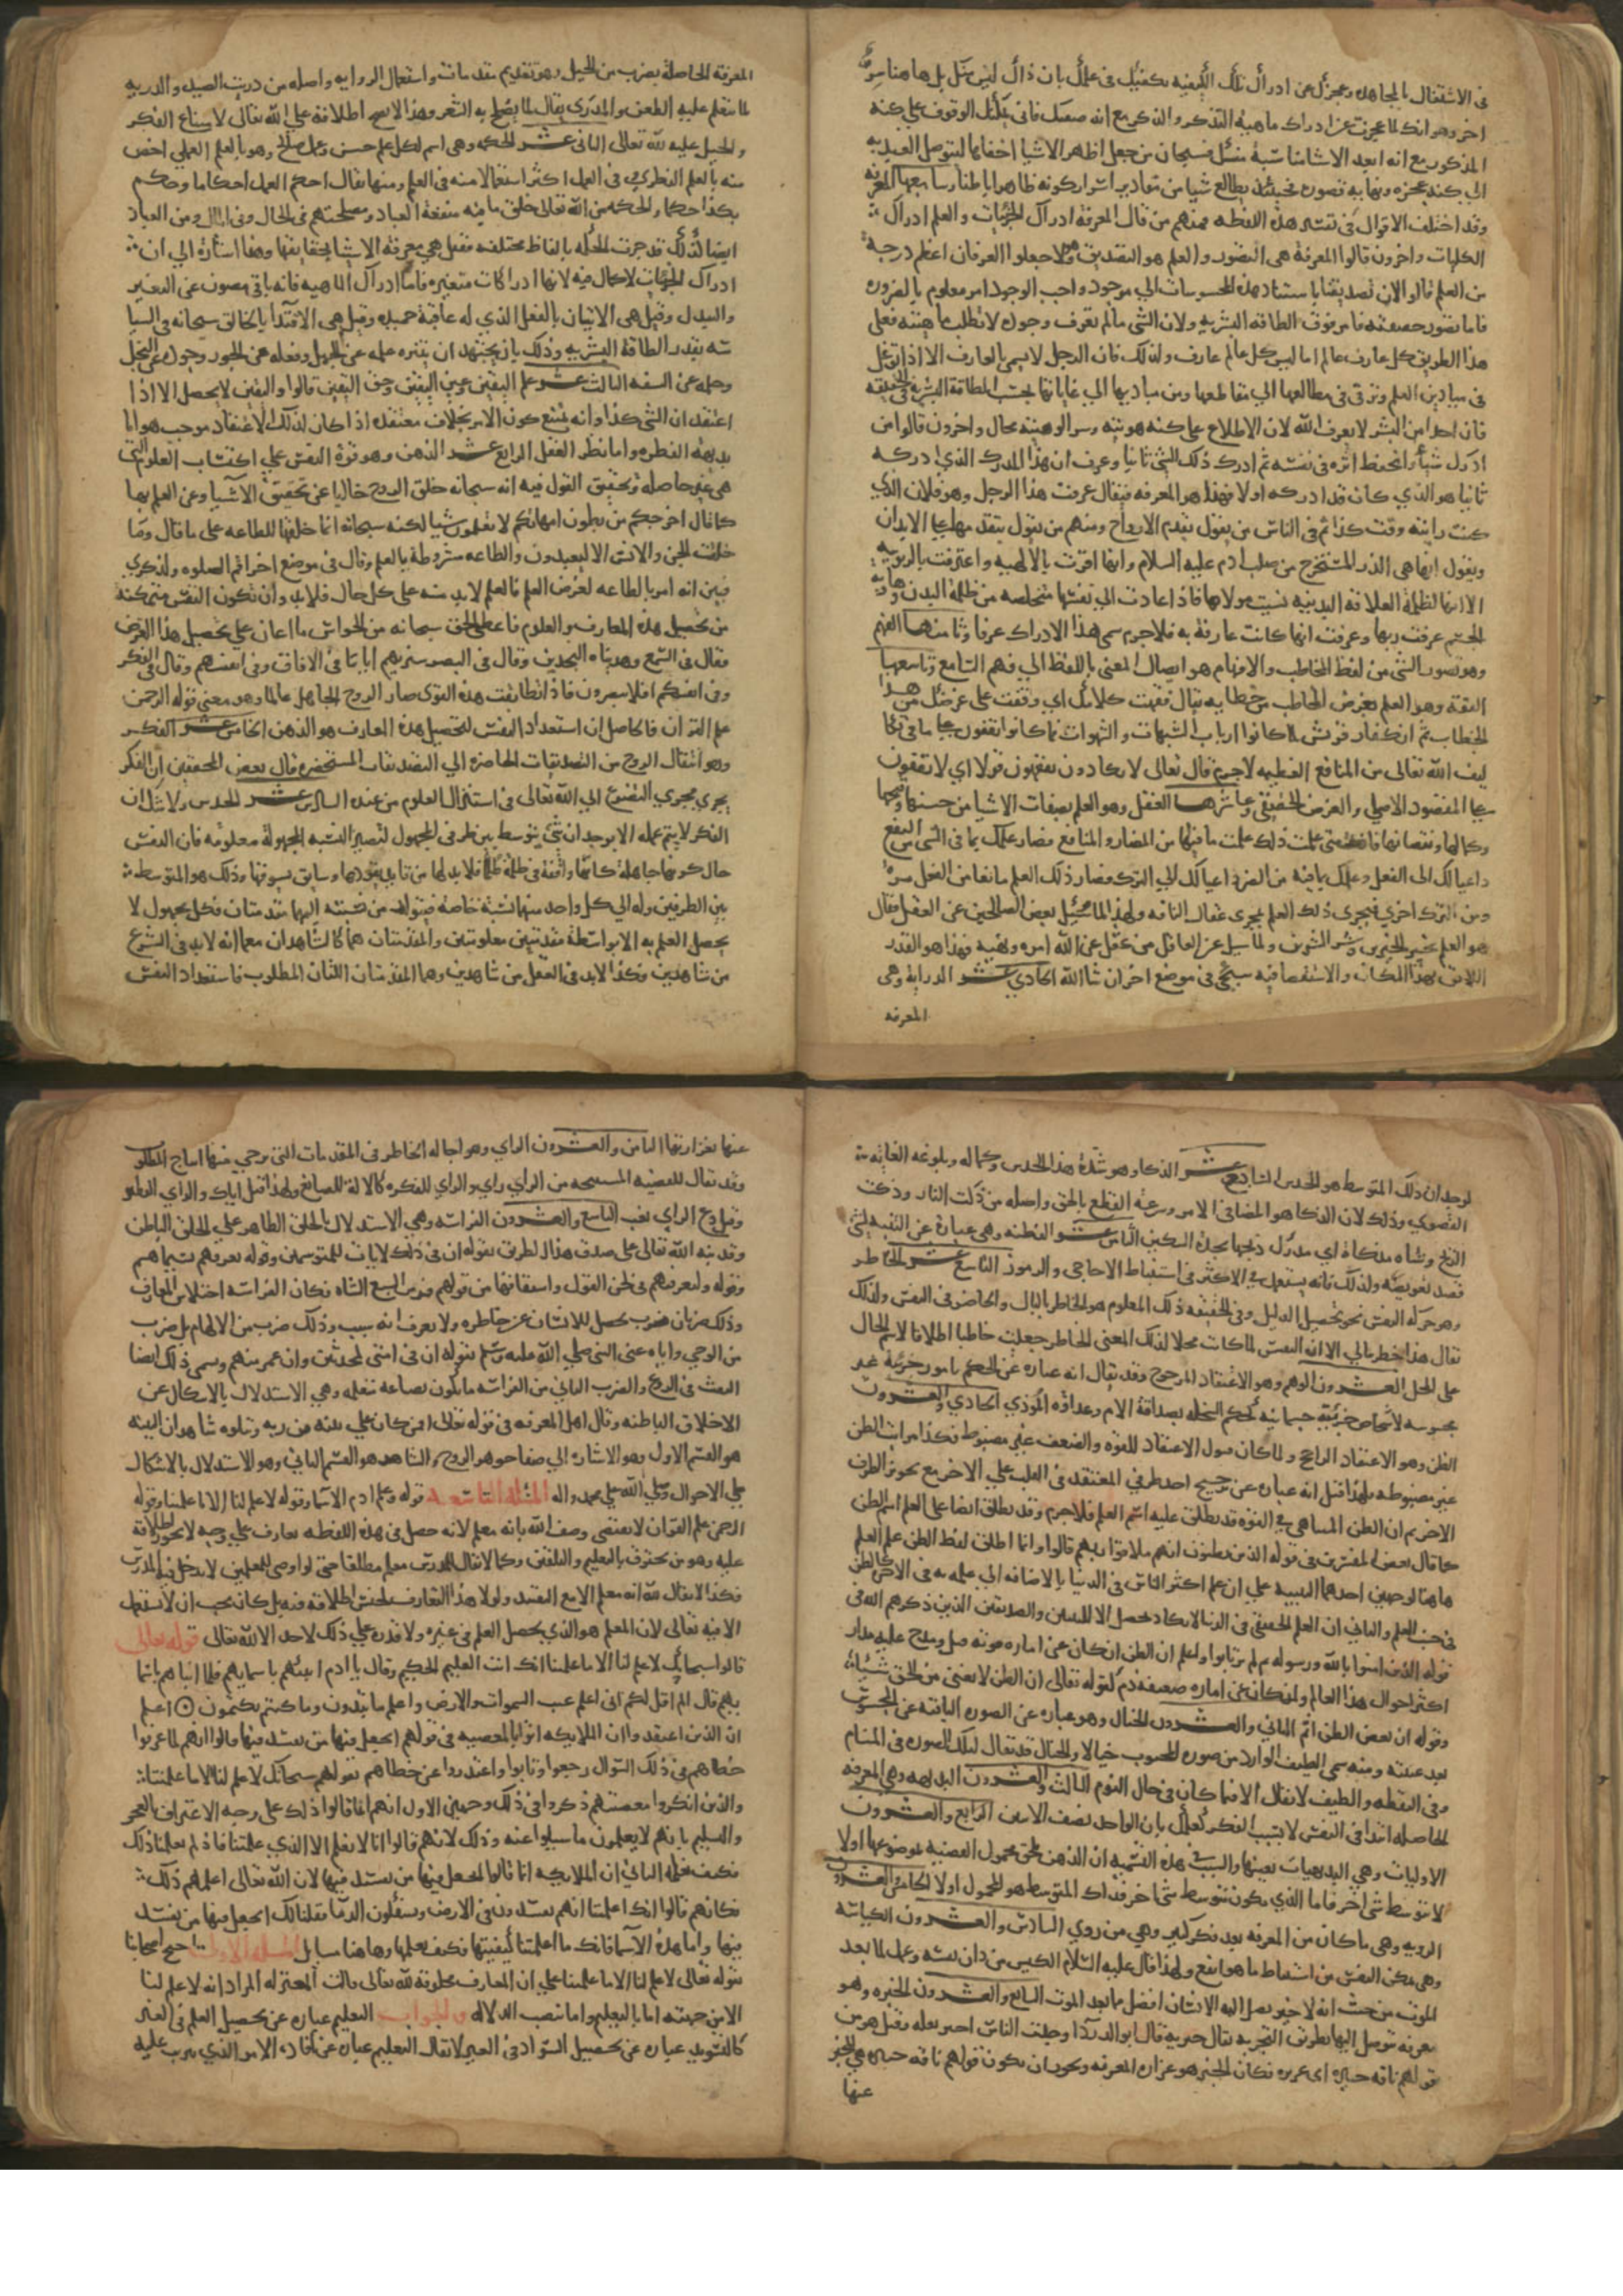 في الاشتغال بالمجاهدة وعجزك عن ادراك تلك الكيفيه يكفيك في علمك بان ذاك ليس مثل بل هاهنا سر
اخر وهو انك لما عجزت عن ادراك ماهية التذكر والذكر مع انه صفتك فاني يمكنك الوقوف على كنه
المذكور مع انه ابعد الاشيا مناسبة منك فسبحان من جعل اظهر الاشيا اخفاها ليتوصل العبد به
الى كنه عجزه ونهاية قصوره فحينئذ يطالع شيا من مقادير اسرار كونه ظاهرا باطنا وسابعها المعرفه
وقد اختلف الاقوال في تفسير هذه اللفظه فمنهم من قال المعرفة ادراك الجزئيات والعلم ادراك
الكليات واخرون قالوا المعرفة هي التصور والعلم هو التصديق وهولا جعلوا العرفان اعظم درجة
من العلم قالوا لان تصديقنا باستناد هذه المحسوسات الى موجود واجب الوجود امر معلوم بالضروره
فاما تصور حقيقته فامر فوق الطاقه البشريه ولان الشي ما لم يعرف وجوده لا تطلب ماهيته فعلى
هذا الطريق كل عارف عالم اما ليس كل عالم عارف ولذلك فان الرجل لا يسمي بالعارف الا اذا توغل
في ميادين العلم وترقى في مطالعها الى مقاطعها ومن مباديها الى غاياتها بحسب الطاقة البشريه وفي الحقيقه
فان احدا من البشر لا يعرف الله لان الاطلاع على كنه هويته وسر الوهيته محال واخرون قالوا من
ادرك شيا وانحفظ اثره في نفسه ثم ادرك ذلك الشي ثانيا وعرف ان هذا المدرك الذي ادركه
ثانيا هو الذي كان قد ادركه اولا فهذا هو المعرفه فيقال عرفت هذا الرجل وهو فلان الذي
كنت رايته وقت كذا ثم في الناس من يقول بقدم الارواح ومنهم من يقول بتقدمها على الابدان
ويقول انها هي الذر المستخرج من صلب ادم عليه السلام وانها اقرت بالالهيه واعترفت بالربوبيه
الا انها لظلمة العلاقه البدنيه نسيت مولاها فاذا عادت الى نفسها متخلصه من ظلمة البدن وهاوية
الجسم عرفت ربها وعرفت انها كانت عارفة به فلا جرم سمى هذا الادراك عرفا وثامنها الفهم
وهو تصور الشي من لفظ المخاطب والافهام هو ايصال المعنى باللفظ الى فهم السامع وتاسعها
الفقه وهو العلم بغرض المخاطب من خطابه يقال فقهت كلامك اي وقفت على غرضك من هذا
الخطاب ثم ان كفار قريش لما كانوا ارباب الشبهات والشهوات فما كانوا يقفون على ما في تكا
ليف الله تعالى من المنافع العظيمه لاجرم قال تعالى لا يكادون يفقهون قولا اي لا يقفون
على المقصود الاصلي والغرض الحقيقي وعاشرها العقل وهو العلم بصفات الاشيا من حسنها وقبحها
وكمالها ونقصانها فانك متى علمت ذلك علمت ما فيها من المضار والمنافع فصار علمك بما في الشي من النفع
داعيا لك الى الفعل وعلمك بما فيه من الضرر داعيا لك الى الترك فصار ذلك العلم مانعا من الفعل مره
ومن الترك اخرى فيجري ذلك العلم مجرى عقال الناقه ولهذا لما سئل بعض الصالحين عن العقل فقال
هو العلم بخير الخيرين وشر الشرين ولما سيل عن العاقل من عقل عن الله امره ونهيه فهذا هو القدر
اللايق بهذا المكان والاستقصا فيه سيجي في موضع اخر ان شا الله الحادي عشر الدراية وهي
المعرفه
المعرفة الحاصلة بضرب من الحيل وهو تقديم مقدمات واستعمال الرويه واصله من دريت الصيد والدريه
لما يتعلم عليه الطعن والمدرى يقال لما يصلح به الشعر وهذا الاسم اطلاقه على الله تعالى لامتناع الفكر
والحيل عليه لله تعالى الثاني عشر الحكمه وهي اسم لكل علم حسن وعمل صالح وهو بالعلم العملي اخص
منه بالعلم النظري وفي العمل اكثر استعمالا منه في العلم ومنها يقال احكم العمل احكاما وحكم
بكذا حكما والحكمه من الله تعالى خلق ما فيه منفعة العباد ومصلحتهم في الحال وفي المال ومن العباد
ايضا كذلك قد حدت الحكمه بالفاظ مختلفه فقيل هي معرفة الاشيا بحقايقها وهذا اشارة الى ان
ادراك الجزئيات لا كمال فيه لانها ادراكات متغيره فاما ادراك الماهيه فانه باقي مصون عن التغير
والتبدل وقيل هي الاتيان بالفعل الذي له عاقبة حميده وقيل هي الاقتدا بالخالق سبحانه في السيا
سه بقدر الطاقة البشريه وذلك بان يجتهد ان ينزه علمه عن الجهل وفعله عن الجور وجوده عن البخل
وحلمه عن السفه الثالث عشر علم اليقين وعين اليقين وحق اليقين قالوا واليقين لا يحصل الا اذا
اعتقد ان الشي كذا وانه يمتنع كون الامر بخلاف معتقده اذا كان لذلك الاعتقاد موجب هو اما
بديهة الفطره واما نظر العقل الرابع عشر الذهن وهو قوة النفس على اكتساب العلوم التي
هي غير حاصله وتحقيق القول فيه انه سبحانه خلق الروح خاليا عن تحقيق الاشيا وعن العلم بها
كما قال اخرجكم من بطون امهاتكم لا تعلمون شيا لكنه سبحانه انما خلقها للطاعه على ما قال وما
خلقت الجن والانس الا ليعبدون والطاعه مشروطة بالعلم وقال في موضع اخر اقم الصلوه لذكري
فبين انه امر بالطاعه لغرض العلم فالعلم لا بد منه على كل حال فلابد وان تكون النفس متمكنة
من تحصيل هذه المعارف والعلوم فاعطى الحق سبحانه من الحواس ما اعان على تحصيل هذا الغرض
فقال في السمع وهديناه النجدين وقال في البصر سنريهم اياتنا في الافاق وفي انفسهم وقال في الفكر
وفي انفسكم افلا تبصرون فاذا تطابقت هذه القوى صار الروح الجاهل عالما وهو معني قوله الرحمن
علم القران فالحاصل ان استعداد النفس لتحصيل هذه المعارف هو الذهن الخامس عشر الفكر
وهو انتقال الروح من التصديقات الحاضره الى التصديقات المستحضره قال بعض المحققين ان الفكر
يجري مجرى التضرع الى الله تعالى في استنزال العلوم من عنده السادس عشر الحدس ولا شك ان
الفكر لا يتم عمله الا بوجدان شي يتوسط بين طرفي المجهول لتصير النسبه المجهولة معلومه فان النفس
حال كونها جاهلة كانها واقفة في ظلمة ظلما فلا بد لها من قايد يقودها وسايق يسوقها وذلك هو المتوسط
بين الطرفين وله الى كل واحد منهما نسبة خاصه فيتولد من نسبته اليهما مقدمتان فكل مجهول لا
يحصل العلم به الا بواسطة مقدمتين معلومتين والمقدمتان هما كالشاهدان فكما انه لابد في الشرع
من شاهدين فكذا لابد في العقل من شاهدين وهما المقدمتان اللتان المطلوب فاستعداد النفس
لوجدان ذلك المتوسط هو الحدس السابع عشر الذكاء وهو شدة هذا الحدس وكماله وبلوغه الغاية
القصوى وذلك لان الذكا هو المضا في الامر وسرعة القطع بالحق واصله من ذكت النار وذكت
الريح وشاه مذكاة اي مدرك ذبحها بحدة السكين الثامن عشر الفطنه وهي عبارة عن التنبه لشي
قصد تعريضه ولذلك فانه يستعمل في الاكثر في استنباط الاحاجي والرموز التاسع عشر الخاطر
وهو حركة النفس نحو تحصيل الدليل وفي الحقيقه ذلك المعلوم هو الخاطر بالبال والحاضر في النفس ولذلك
يقال هذا خطر ببالي الا ان النفس لما كانت محلا لذلك المعنى الخاطر جعلت خاطرا اطلاقا لاسم الحال
على المحل العشرون الوهم وهو الاعتقاد المرجوح وقد يقال انه عباره عن الحكم بامور جزئية غير
محسوسه لاشخاص جزئيه جسمانيه كحكم السخله بصداقة الام وعداوة الموذي الحادي والعشرون
الظن وهو الاعتقاد الراجح ولما كان قبول الاعتقاد للقوه والضعف غير مضبوط فكذا مراتب الظن
غير مضبوطه فلهذا قيل انه عباره عن ترجيح احد طرفي المعتقد في القلب على الاخر مع تجويز الطرف
الاخر ثم ان الظن المتناهي في القوه قد يطلق عليه اسم العلم فلا جرم وقد يطلق ايضا على العلم اسم الظن
كما قال بعض المفسرين في قوله الذين يظنون انهم ملاقوا ربهم قالوا وانما اطلق لفظ الظن على العلم
هاهنا لوجهين احدهما التنبيه على ان علم اكثر الناس في الدنيا بالاضافه الى علمه به في الاخره كالظن
في جنب العلم والثاني ان العلم الحقيقي في الدنيا لا يكاد يحصل الا للنبيين والصديقين الذين ذكرهم الله في
قوله الذين امنوا بالله ورسوله ثم لم يرتابوا واعلم ان الظن ان كان عن اماره قويه قبل ومدح عليه مدار
اكثر احوال هذا العالم وان كان عن اماره ضعيفه ذم كقوله تعالى ان الظن لا يغني من الحق شيئا
وقوله ان بعض الظن اثم الثاني والعشرون الخيال وهو عباره عن الصوره الباقيه عن المحسوس
بعد غيبته ومنه سمى الطيف الوارد من صوره المحبوب خيالا والخيال قد يقال لتلك الصوره في المنام
وفي اليقظه والطيف لا يقال الا فيما كان في حال النوم الثالث والعشرون البديهه وهي المعرفه
الحاصله ابتدا في النفس لا بسبب الفكر كعلمك بان الواحد نصف الاثنين الرابع والعشرون
الاوليات وهي البديهيات بعينها والسبب في هذه التسميه ان الذهن يلحق محمول القضيه بموضوعها اولا
لا بتوسط شي اخر فاما الذي يكون بتوسط شي اخر فذاك المتوسط هو المحمول اولا الخامس والعشرون
الرويه وهي ما كان من المعرفه بعد فكر كثير وهي من روي السادس والعشرون الكياسه
وهي تمكن النفس من استنباط ما هو انفع ولهذا قال عليه السلام الكيس من دان نفسه وعمل لما بعد
الموت من حيث انه لا خير يصل اليه الانسان افضل مما بعد الموت السابع والعشرون الخبره وهو
معرفه يتوصل اليها بطريق التجربه يقال خبرته قال ابو الدردا وجدت الناس اخبر تقله وقيل هو من
قولهم ناقه خبره اي غزيره فكان الخبر هو غزاره المعرفه ويجوز ان يكون قولهم ناقه خبره هي المخبر
عنها
عنها بغزارتها الثامن والعشرون الراي وهو اجاله الخاطر في المقدمات التي يرجي منها انتاج المطلوب
وقد يقال للقضيه المستنتجه من الراي راي والراي للفكره كالالة للصانع ولهذا قيل اياك والراي الفطير
وقيل دع الراي يغب التاسع والعشرون الفراسه وهي الاستدلال بالخلق الظاهر على الخلق الباطن
وقد نبه الله تعالى على صدق هذا الطريق بقوله ان في ذلك لايات للمتوسمين وقوله تعرفهم بسيماهم
وقوله ولتعرفنهم في لحن القول واشتقاقها من قولهم فرس السبع الشاه فكان الفراسه اختلاس المعارف
وذلك ضربان ضرب يحصل للانسان عن خاطره ولا يعرف له سبب وذلك ضرب من الالهام بل ضرب
من الوحي واياه عنى النبي صلى الله عليه وسلم بقوله ان في امتي لمحدثين وان عمر منهم ويسمى ذلك ايضا
النفث في الروع والضرب الثاني من الفراسه ما يكون بصناعه متعلمه وهي الاستدلال بالاشكال عن
الاخلاق الباطنه وقال اهل المعرفه في قوله تعالى افمن كان على بينه من ربه ويتلوه شاهد ان البينه
هو القسم الاول وهو الاشاره الى صفا جوهر الروح والشاهد هو القسم الثاني وهو الاستدلال بالاشكال
على الاحوال وصلى الله على محمد واله المسئلة التاسعة قوله وعلم ادم الاسما وقوله لا علم لنا الا ما علمتنا وقوله
الرحمن علم القران لا يقتضى وصف الله بانه معلم لانه حصل في هذه اللفظه تعارف على وجه لا يجوز اطلاقه
عليه وهو من يحترف بالتعليم والتلقين وكما لا يقال للمدرس معلم مطلقا حتى لو اوصى للمعلمين لا يدخل فيه المدرس
فكذا لا يقال لله انه معلم الا مع التقييد ولولا هذا التعارف لحسن اطلاقه فيه بل كان يجب ان لا يستعمل
الا فيه تعالى لان المعلم هو الذي يحصل العلم في غيره ولا قدره على ذلك لاحد الا الله تعالى قوله تعالى
قالوا سبحانك لا علم لنا الا ما علمتنا انك انت العليم الحكيم وقال يا ادم انبئهم باسمايهم فلما انباهم باسما
يهم قال الم اقل لكم اني اعلم غيب السموات والارض واعلم ما تبدون وما كنتم تكتمون اعلم
ان الذين اعتقدوا ان الملايكه اتوا بالمعصيه في قولهم اتجعل فيها من يفسد فيها قالوا انهم لما عرفوا
خطاهم في ذلك السوال رجعوا وتابوا واعتذروا عن خطاهم بقولهم سبحانك لا علم لنا الا ما علمتنا
والذين انكروا معصيتهم ذكروا في ذلك وجهين الاول انهم انما قالوا ذلك على وجه الاعتراف بالعجز
والتسليم بانهم لا يعلمون ما سيلوا عنه وذلك لانهم قالوا انا لا نعلم الا الذي علمتنا فاذا لم تعلمنا ذلك
فكيف نعلمه الثاني ان الملايكه انما قالوا اتجعل فيها من يفسد فيها لان الله تعالى اعلمهم ذلك
فكانهم قالوا انك اعلمتنا انهم يفسدون في الارض ويسفكون الدما فقلنا لك اتجعل فيها من يفسد
فيها واما هذه الاسما فانك ما اعلمتنا كيفيتها فكيف نعلمها وهاهنا مسايل المسئلة الاولى احتج اصحابنا
بقوله تعالى لا علم لنا الا ما علمتنا على ان المعارف مخلوقة لله تعالى وقالت المعتزله المراد انه لا علم لنا
الا من جهته اما بالتعليم واما بنصب الدلاله والجواب التعليم عباره عن تحصيل العلم في الغير
كالتسويد عباره عن تحصيل السواد في الغير لا يقال التعليم عباره عن افادة الامر الذي يترتب عليه